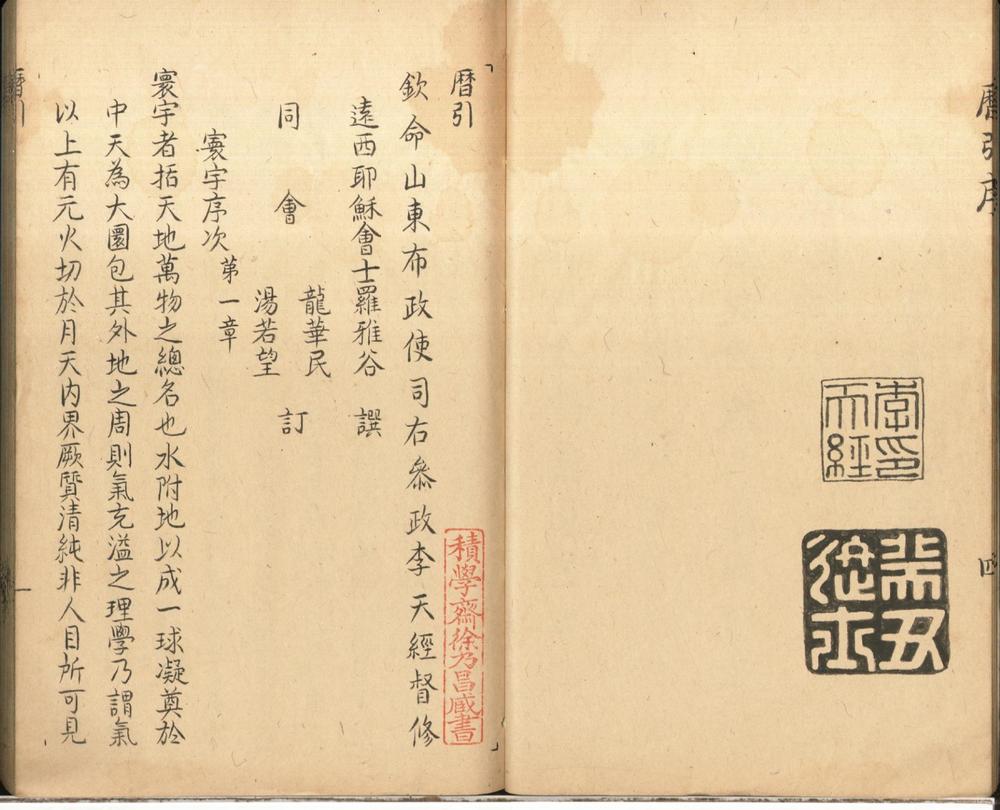 曆引序
四
李印天經
癸丑進士
暦引
積學齋徐乃昌藏書
欽命山東布政使司右叅政李天經督修
遠西耶穌會士羅雅谷 譔
龍華民
同會 訂
湯若望
寰宇序次 第一章
寰宇者括天地萬物之總名也水附地以成一球凝奠於
中天為大圜包其外地之周則氣充溢之理學乃謂氣
以上有元火切於月天内界厥質清純非人目所可見
暦引
一